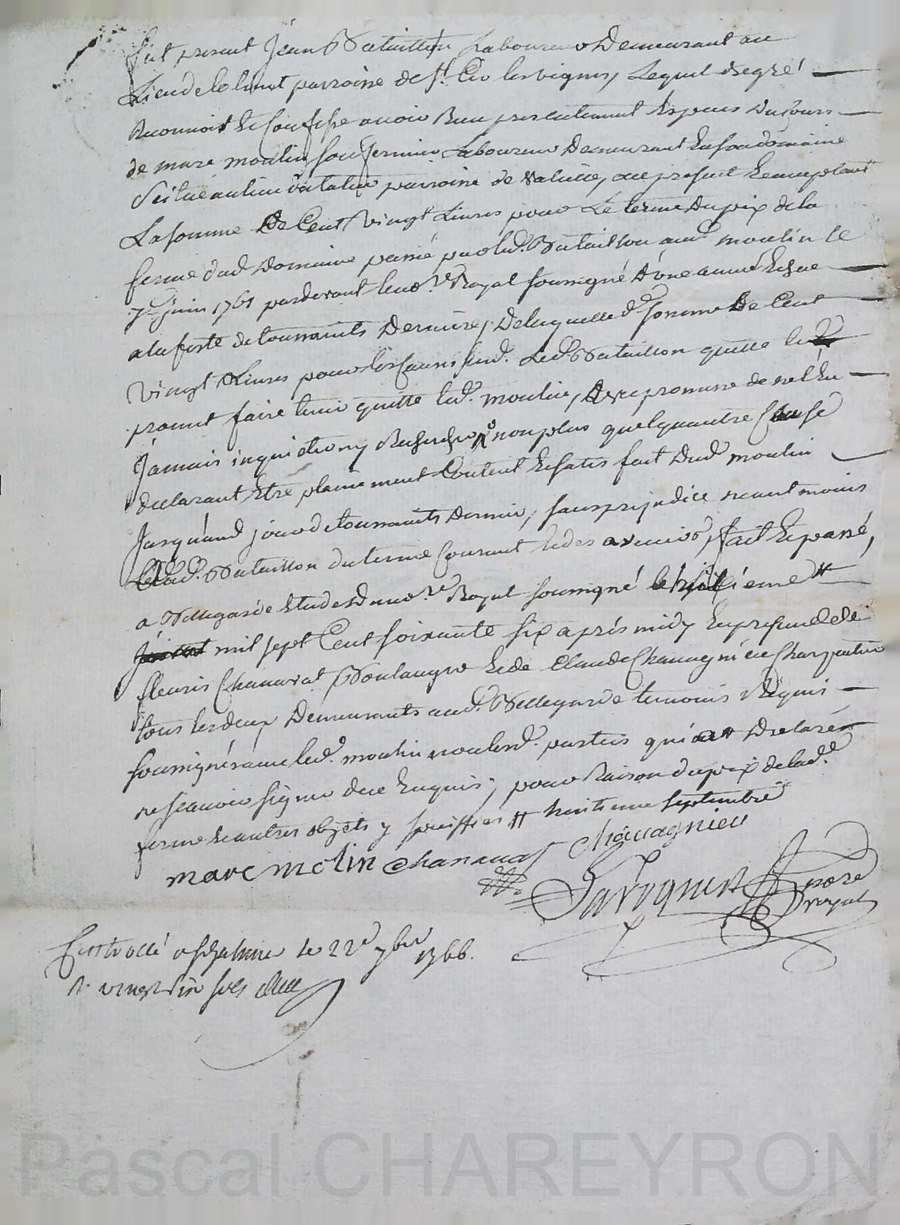 fut present Jean Bataillon Laboureur Demeurant au
Lieu de parroisse de St. les vignes, Lequel degré
Reconnoit Et Confesse avoir Reçu presentement En especes Du Cours
de marc moulin son fermier Laboureur Demeurant En son domaine
Scitué au lieu parroisse de valeille, au present Et acceptant
La somme De Cent Vingt Livres pour Le terme Du prix de la
ferme dud. Domaine passé par led. Bataillon aud. moulin le
7e. juin 1761 pardevant le no.re Royal soussigné D'une année Echue
a la feste de toussaints Derniere, De laquelle d. somme De Cent
Vingt Livres led. Bataillon quitte le
promet faire tenir quitte led. moulin, avec promesse de ne l'En
Jamais inquietter ny Rechercher non plus que
declarant Etre plainement Content Et satisfait Dud. moulin
Jusqu'aud. jour de toussaints Dernier, sans prejudice neantmoins
aud. Bataillon du terme Courant Et des avenirs, fait Et passé,
a Bellegarde Etude Du no.re Royal soussigné le huitieme #
mil sept Cent soixante six après midy En presence de
fleuris Chanavat Boulanger Et de Claude Chavagnieu Charpentier
tous les deux Demeurants aud. Bellegarde temoins Requis
soussignés avec led. moulin non led. partis qui a Declaré
ne sçavoir signer de ce Enquis, pour Raison du prix de lad.
ferme Et autres objets y specifies # huitieme septembre
marc molin Chanavat Chavagnieu
nore
royal
Controllé a le 22e 7bre 1766.
R. vingt six sols
Pascal CHAREYRON